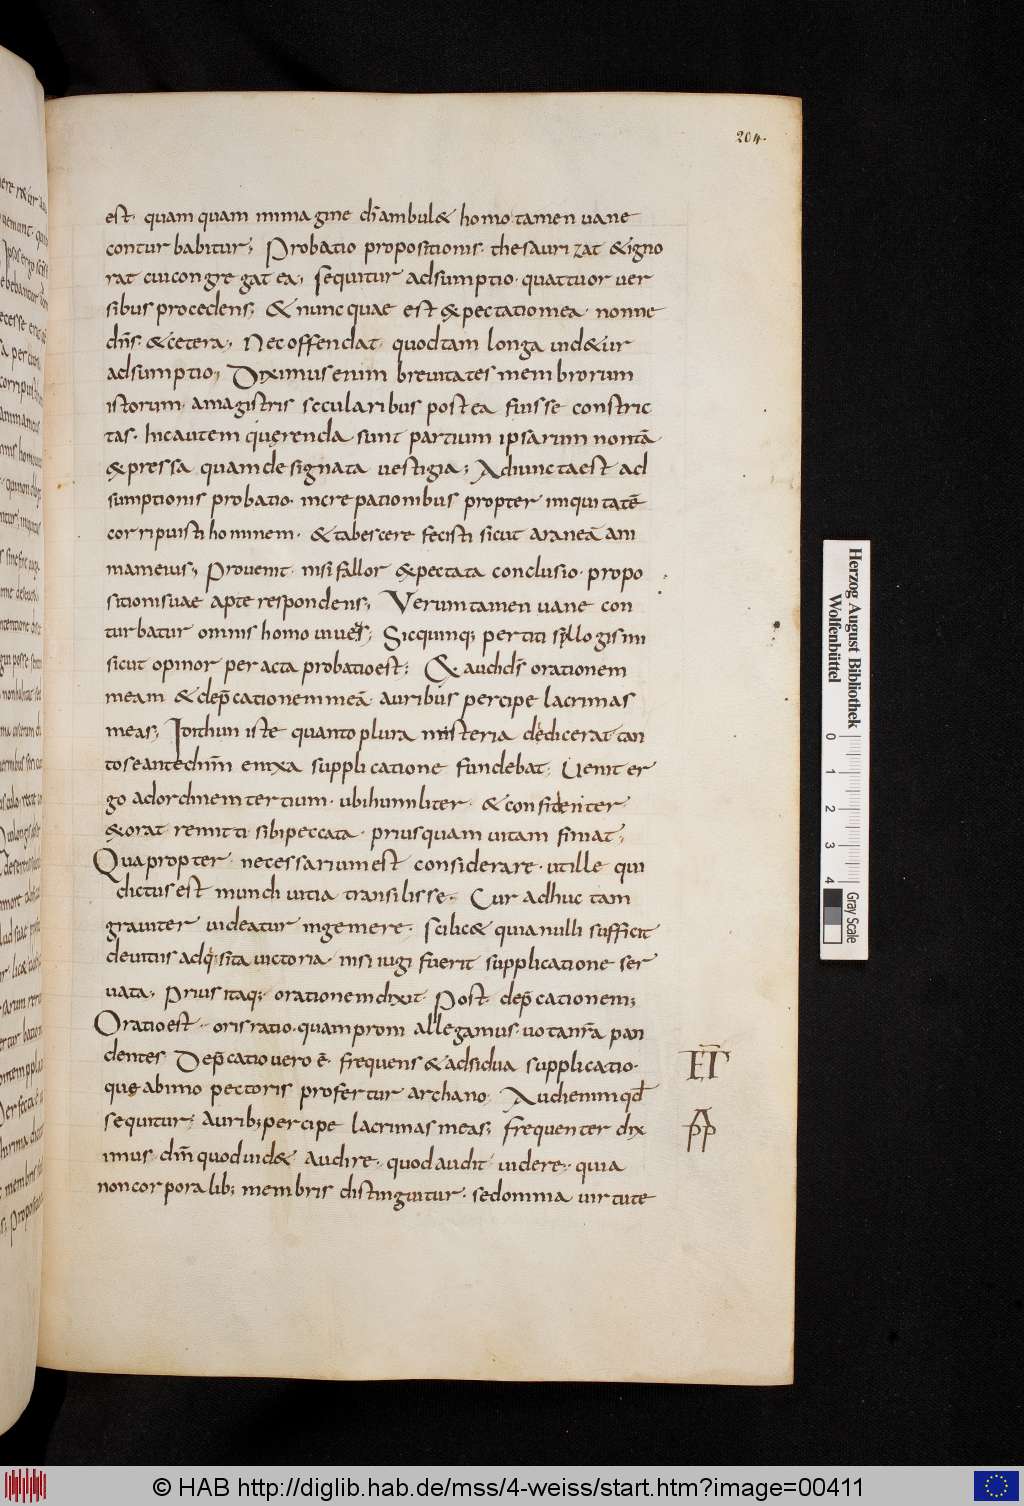 204.
est. quam quam in imagine dī ambul& homo tamen uane
conturbabitur; Probatio propositionis. thesaurizat & igno
rat cui congregat ea; sequitur adsumptio. quattuor uer
sibus procedens; & nunc quae est expectatio mea. nonne
dn̄s. & cetera; Nec offendat. quod tam longa uid&ur
adsumptio; Diximus enim breuitates membrorum
istorum. a magistris secularibus postea fuisse constric
tas. hic autem querenda sunt partium ipsarum non tā
expressa quam designata uestigia; Adiuncta est ad
sumptionis probatio. increpationibus propter iniquitatē
corripuisti hominem. & tabescere fecisti sicut araneā ani
mam eius; Prouenit. nisi fallor expectata conclusio. propo
sitioni suae apte respondens; Verumtamen uane con
turbatur omnis homo uiuens; Sic quinq; pertiti syllogismi
sicut opinor peracta probatio est; Exaudi dn̄s orationem
meam & dep̄cationem meā. auribus percipe lacrimas
meas; Idithun iste quanto plura misteria dedicerat tan
to se ante dn̄m enixa supplicatione fundebat; Uenit er
go ad ordinem tertium. ubi humiliter. & confidenter
exorat remitti sibi peccata. priusquam uitam finiat;
Quapropter. necessarium est considerare. ut ille qui
dictus est mundi uitia transilisse. Cur adhuc tam
grauiter uideatur ingemere. scilic& quia nulli sufficit
de uitiis adq̇sita uictoria. nisi iugi fuerit supplicatione ser
uata; Prius itaq; orationem dixit. Post dep̄cationem;
Oratio est. oris ratio. quam prom allegamus. uota nr̄a pan
dentes. Dep̄catio uero ē. frequens & adsidua supplicatio.
quę ab imo pectoris profertur archano. Audi enim qđ
sequitur; Aurib; percipe lacrimas meas; frequenter dix
imus. dn̄m quod uid& audire. quod audit. uidere. quia
non corporalib; membris distinguitur. sed omnia uirtute
Herzog August Bibliothek
Wolfenbüttel
0 1 2 3 4
Gray Scale
© HAB http://diglib.hab.de/mss/4-weiss/start.htm?image=00411